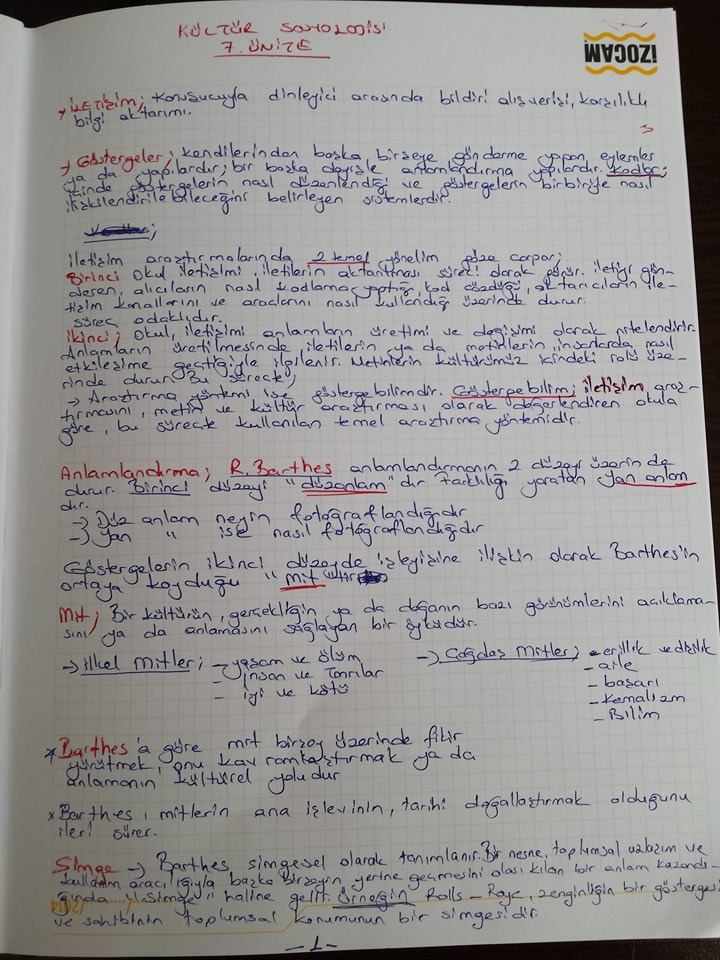 KÜLTÜR SOSYOLOJİSİ
7. ÜNİTE
İZOCAM
→ İLETİŞİM; Konuşucuyla dinleyici arasında bildiri alışverişi, karşılıklı
bilgi aktarımı.
→ Göstergeler; kendilerinden başka birşeye gönderme yapan, eylemler
ya da yapılardır; bir başka deyişle anlamlandırma yapılardır. Kodlar;
içinde göstergelerin nasıl düzenlendiği ve göstergelerin birbiriyle nasıl
ilişkilendirilebileceğini belirleyen sistemlerdir.
İletişim araştırmalarında 2 temel yönelim göze çarpar;
Birinci okul iletişimi, iletilerin aktarılması süreci olarak görür. İletiyi gön-
deren, alıcıların nasıl kodlama yaptığı, kod çözdüğü, aktarıcıların ile-
tişim kanallarını ve araçlarını nasıl kullandığı üzerinde durur.
süreç odaklıdır.
İkinci; Okul, iletişimi anlamların üretimi ve değişimi olarak nitelendirir.
Anlamların üretilmesinde iletilerin ya da metinlerin insanlarda nasıl
etkileşime geçtiğiyle ilgilenir. Metinlerin kültürümüz içindeki rolü üze-
rinde durur. Bu süreçte;
→ Araştırma yöntemi ise göstergebilimdir. Göstergebilim; iletişim araş-
tırmasını, metin ve kültür araştırması olarak değerlendiren okula
göre, bu süreçte kullanılan temel araştırma yöntemidir.
Anlamlandırma; R. Barthes anlamlandırmanın 2 düzeyi üzerinde
durur. Birinci düzeyi "düzanlam" dır farklılığı yaratan yan anlam
dır.
→ Düz anlam neyin fotoğraflandığıdır
→ Yan " ise nasıl fotoğraflandığıdır
Göstergelerin ikinci düzeyde işleyişine ilişkin olarak Barthes'in
ortaya koyduğu "mit" tir
Mit; Bir kültürün, gerçekliğin ya da doğanın bazı görünümlerini açıklama-
sını ya da anlamasını sağlayan bir öyküdür.
→ İlkel mitler; - yaşam ve ölüm
- insan ve Tanrılar
- iyi ve kötü
→ Çağdaş mitler; - erillik ve dişilik
- aile
- başarı
- Kemalizm
- Bilim
* Barthes'a göre mit birşey üzerinde fikir
yürütmek, onu kavramlaştırmak ya da
anlamanın kültürel yoludur
* Barthes, mitlerin ana işlevinin, tarihi doğallaştırmak olduğunu
ileri sürer.
Simge → Barthes simgesel olarak tanımlanır. Bir nesne, toplumsal uzlaşım ve
kullanım aracılığıyla başka birşeyin yerine geçmesini olası kılan bir anlam kazandı-
ğında "Simge" haline gelir. Örneğin Rolls-Royc, zenginliğin bir göstergesi
ve sahibinin toplumsal konumunun bir simgesidir
-1-